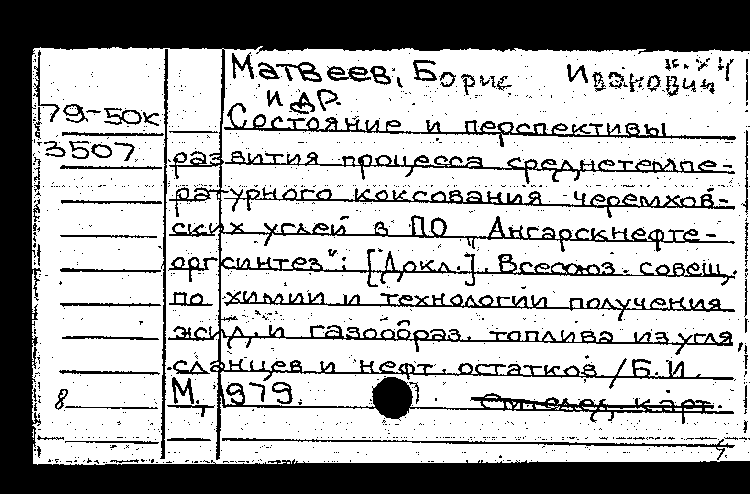 Матвеев, Борис Иванович
и др.
79-50к Состояние и перспективы
3507 развития процесса среднетемпе-
ратурного коксования черемхов-
ских углей в ПО „Ангарскнефте-
оргсинтез": [Докл.]. Всесоюз. совещ.
по химии и технологии получения
жид. и газообраз. топлива из угля,
сланцев и нефт. остатков / Б.И.
8 М., 1979.
карт.